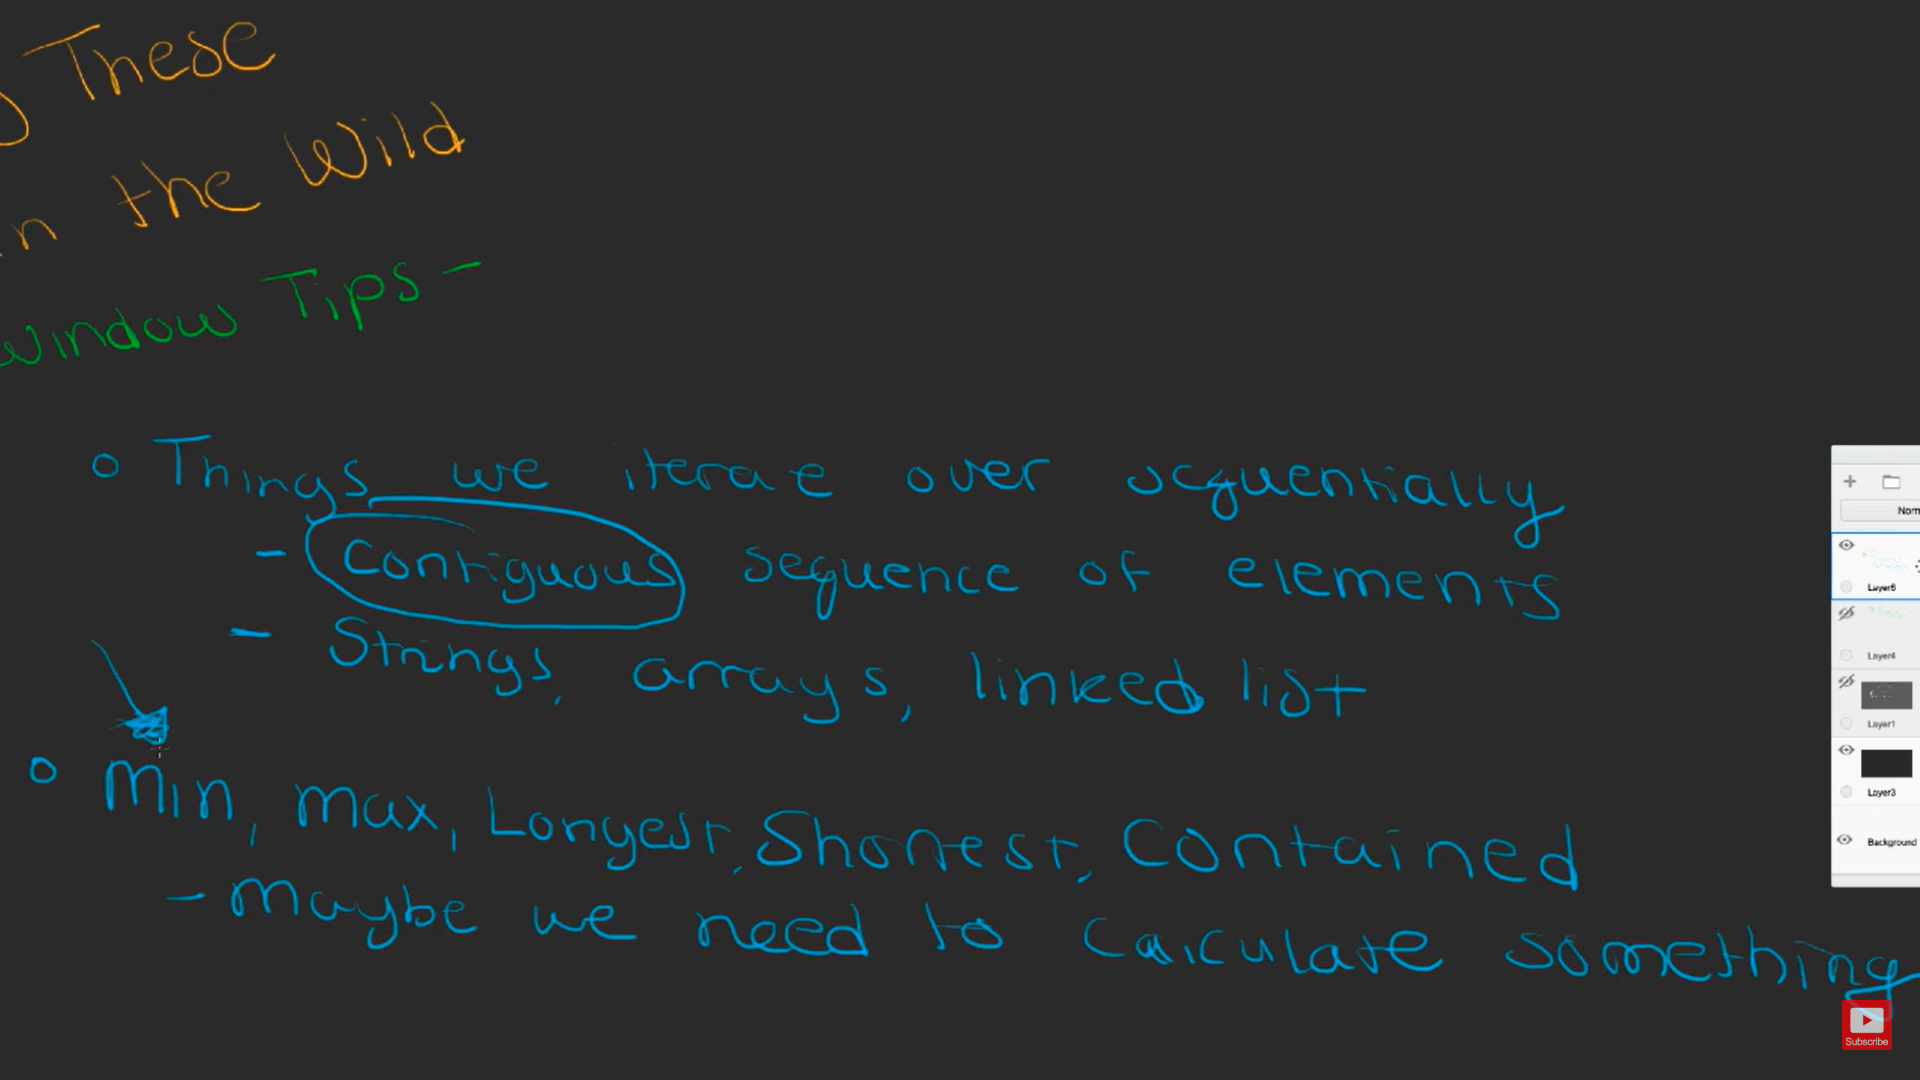 These
n the Wild
window Tips-
o Things we iterate over sequentially
- Contiguous sequence of elements
- Strings, arrays, linked list
o Min, max, Longest, Shortest, Contained
- maybe we need to calculate something
Norm
Layer6
Layer4
Layer1
Layer3
Background
Subscribe